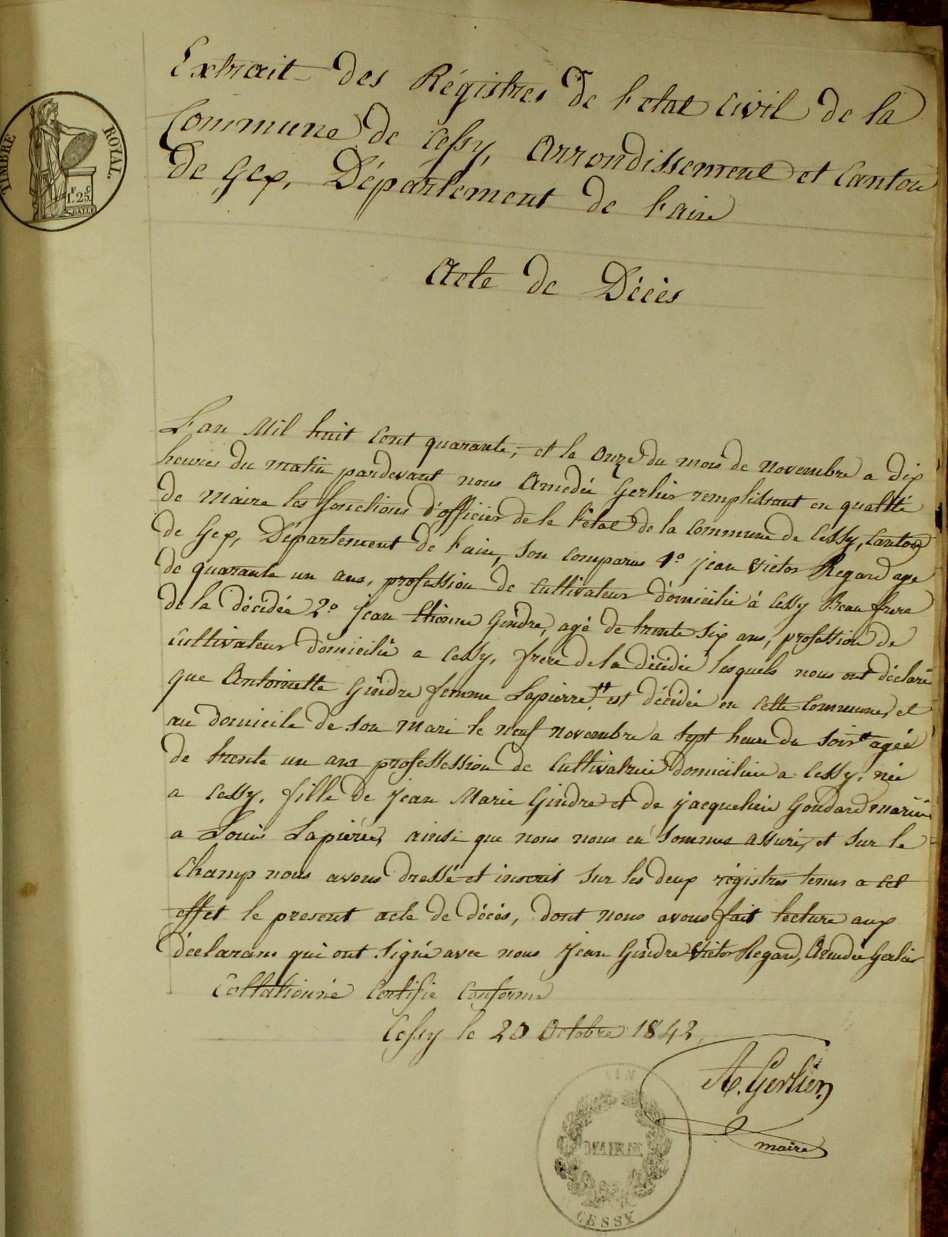 TIMBRE ROYAL
1.F 25.C
Extrait des Régistres de l'etat civil de la
Commune de Cessy, Arrondissement et Canton
De Gex, Département de l'ain
Acte de Décès
L'an Mil huit cent quarante, et le onze du mois de novembre a dix
heures du matin pardevant nous Amedée Gerlier remplissant en qualité
de maire les fonctions d'officier de l'etat de la commune de Cessy, Canton
de Gex, Département de l'ain, son comparus 1º jean victor Regard age
de quarante un ans, profession de cultivateur domicilié à Cessy Beau frere
de la décédée 2º jean Etienne Gindre, agé de trente six ans, profession de
cultivateur domicilié a Cessy, frere de la décédée lesquels nous ont déclaré
que Antoinette Gindre femme Lapierre est décédée en cette Commune, et
au domicile de son mari le neuf novembre a sept heure du soir agée
de trente un ans professession de cultivatrice domiciliée a Cessy, née
a Cessy, fille de jean Marie Gindre et de jacqueline Goudard mariée
a Louis Lapierre, ainsi que nous nous en sommes assuré, et sur le
Champ nous avons dressé et inscrit sur les deux régistres tenus a cet
effet le present acte de décés, dont nous avons fait lecture aux
déclarans qui ont signé avec nous jean Gindre Victor Regard, Amedée Gerlier
Collationné Certifié Conforme
Cessy le 20 Octobre 1842,
A. Gerlier,
maire
AIN
MAIRIE
CESSY